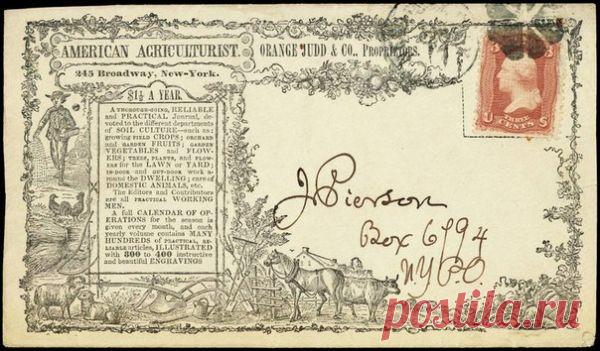 AMERICAN AGRICULTURIST.
ORANGE JUDD & CO., PROPRIETORS.
245 Broadway, New-York.
$1½ A YEAR.
A THOROUGH-GOING, RELIABLE
and PRACTICAL Journal, de-
voted to the different departments
of SOIL CULTURE—such as;
growing FIELD CROPS; ORCHARD
and GARDEN FRUITS; GARDEN
VEGETABLES and FLOW-
ERS; TREES, PLANTS, and FLOW-
ERS for the LAWN or YARD;
IN-DOOR and OUT-DOOR work a-
round the DWELLING; care of
DOMESTIC ANIMALS, etc.
The Editors and Contributors
are all PRACTICAL WORKING
MEN.
A full CALENDAR OF OP-
ERATIONS for the season is
given every month, and each
yearly volume contains MANY
HUNDREDS of PRACTICAL, RE-
LIABLE articles, ILLUSTRATED
with 300 to 400 instructive
and beautiful ENGRAVINGS
U S
THREE
CENTS
J Pierson
Box 6794
N.Y.P.O
postila.ru